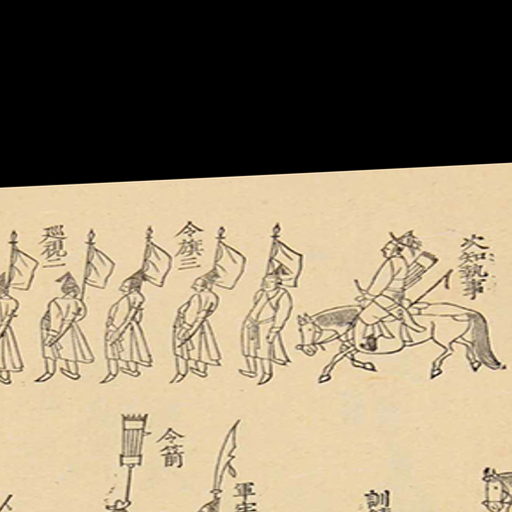 次知執事
令旗二
巡視二
訓
軍牢
令箭